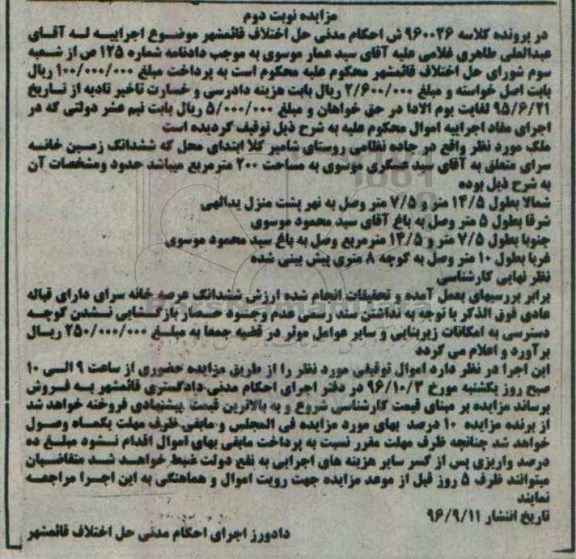 مزایده نوبت دوم
در پرونده کلاسه ۹۶۰۰۲۶ ش احکام مدنی حل اختلاف قائمشهر موضوع اجراییه له آقای
عبدالعلی طاهری غلامی علیه آقای سید عمار موسوی به موجب دادنامه شماره ۱۲۵ ص از شعبه
سوم شورای حل اختلاف قائمشهر محکوم علیه محکوم است به پرداخت مبلغ ۱۰۰/۰۰۰/۰۰۰ ریال
بابت اصل خواسته و مبلغ ۲/۶۰۰/۰۰۰ ریال بابت هزینه دادرسی و خسارت تاخیر تادیه از تاریخ
۹۵/۶/۲۱ لغایت یوم الادا در حق خواهان و مبلغ ۵/۰۰۰/۰۰۰ ریال بابت نیم عشر دولتی که در
اجرای مفاد اجراییه اموال محکوم علیه به شرح ذیل توقیف گردیده است
ملک مورد نظر واقع در جاده نظامی روستای شامیر کلا ابتدای محل که ششدانگ زمین خانه
سرای متعلق به آقای سید عسکری موسوی به مساحت ۲۰۰ مترمربع میباشد حدود ومشخصات آن
به شرح ذیل بوده
شمالا بطول ۱۴/۵ متر و ۷/۵ متر وصل به نهر پشت منزل یدالهی
شرقا بطول ۵ متر وصل به باغ آقای سید محمود موسوی
جنوبا بطول ۷/۵ متر و ۱۴/۵ مترمربع وصل به باغ سید محمود موسوی
غربا بطول ۱۰ متر وصل به کوچه ۸ متری پیش بینی شده
نظر نهایی کارشناسی
برابر بررسیهای بعمل آمده و تحقیقات انجام شده ارزش ششدانگ عرصه خانه سرای دارای قباله
عادی فوق الذکر با توجه به نداشتن سند رسمی عدم وجود حصار بازگشایی نشدن کوچه
دسترسی به امکانات زیربنایی و سایر عوامل موثر در قضیه جمعا به مبلغ ۲۵۰/۰۰۰/۰۰۰ ریال
برآورد و اعلام می گردد
این اجرا در نظر دارد اموال توقیفی مورد نظر را از طریق مزایده حضوری از ساعت ۹ الی ۱۰
صبح روز یکشنبه مورخ ۹۶/۱۰/۳ در دفتر اجرای احکام مدنی دادگستری قائمشهر به فروش
برساند مزایده بر مبنای قیمت کارشناسی شروع و به بالاترین قیمت پیشنهادی فروخته خواهد شد
از برنده مزایده ۱۰ درصد بهای مورد مزایده فی المجلس و مابقی ظرف مهلت یکماه وصول
خواهد شد چنانچه ظرف مهلت مقرر نسبت به پرداخت مابقی بهای اموال اقدام نشود مبلغ ده
درصد واریزی پس از کسر سایر هزینه های اجرایی به نفع دولت ضبط خواهد شد متقاضیان
میتوانند ظرف ۵ روز قبل از موعد مزایده جهت رویت اموال و هماهنگی به این اجرا مراجعه
نمایند
تاریخ انتشار ۹۶/۹/۱۱
دادورز اجرای احکام مدنی حل اختلاف قائمشهر